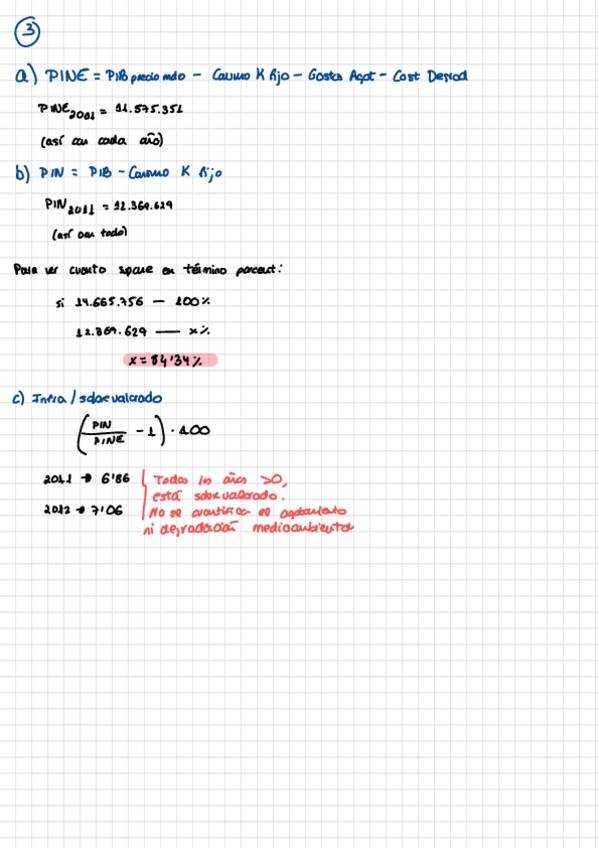 3
a) PINE = PIB precio mdo - Consumo K fijo - Costes Agot - Cost Degrad
PINE2001 = 11.575.351
(así con cada año)
b) PIN = PIB - Consumo K fijo
PIN2011 = 12.369.629
(así con todo)
Para ver cuanto supone en término porcent:
si 14.665.756 — 100%
12.369.629 — x%
x = 84'34%
c) Infra / sobrevalorado
(PIN/PINE - 1) · 100
2011 → 6'86 Todos los años >0,
está sobrevalorado.
2012 → 7'06 No se cuantifica el agotamiento
ni degradación medioambiental